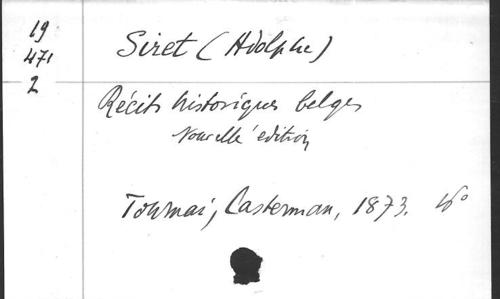 19
471
2
Siret (Adolphe)
Récits historiques belges
Nouvelle édition
Tournai, Casterman, 1873.